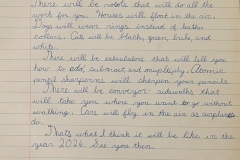 There will be robots that will do all the
work for you. Houses will float in the air.
Dogs will wear rings instead of
collars. Cats will be black, green, brite, and
white.
There will be calculators that will tell you
how to add, subract and mupleply. Atomic
pencil sharpeners will sharpen your pencils.
There will be conveyor sidwalks that
will take you where you want to go without
walking. Cars will fly in the air as airplanes
do.
Thats what I think it will be like in the
year 2026. See you then.